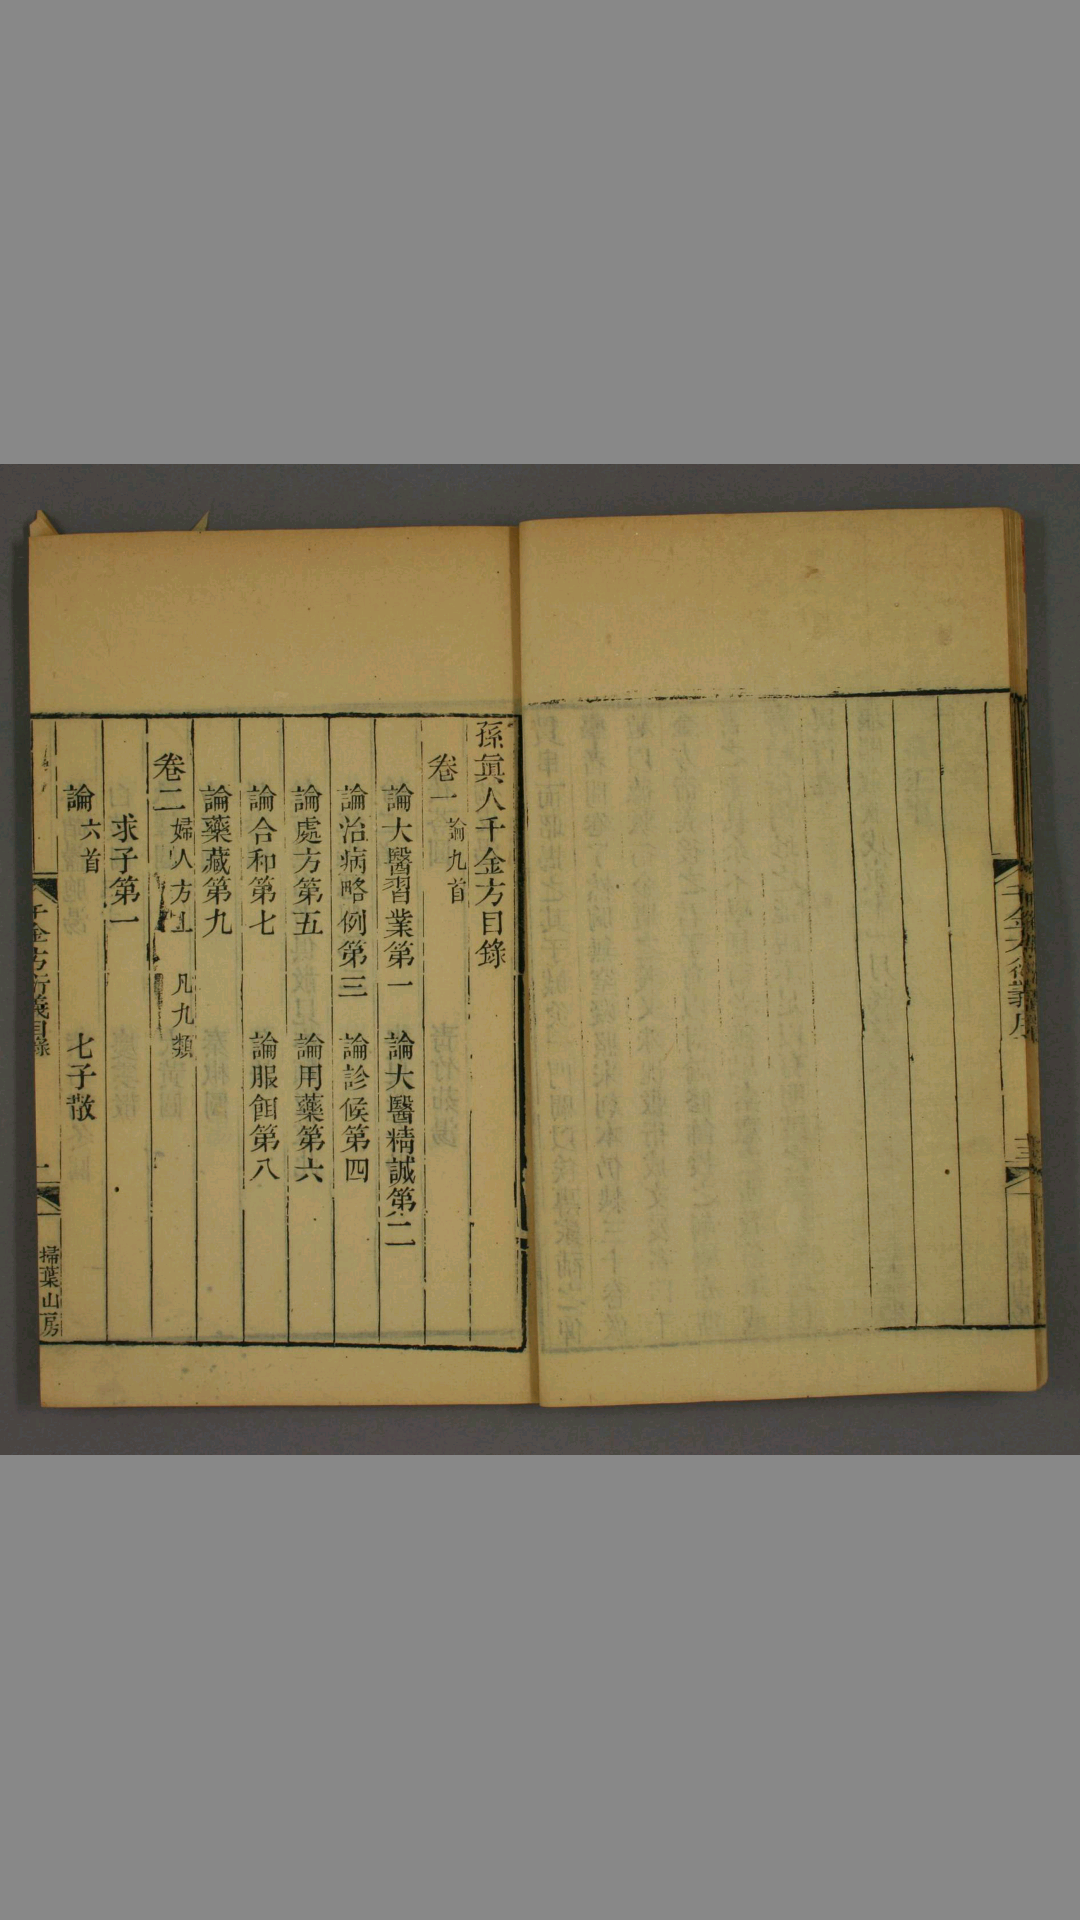 千金方衍義序
三
孫眞人千金方目錄
卷一 論九首
論大醫習業第一 論大醫精誠第二
論治病略例第三 論診候第四
論處方第五 論用藥第六
論合和第七 論服餌第八
論藥藏第九
卷二 婦人方上 凡九類
求子第一
論六首 七子散
千金方衍義目錄
一
掃葉山房